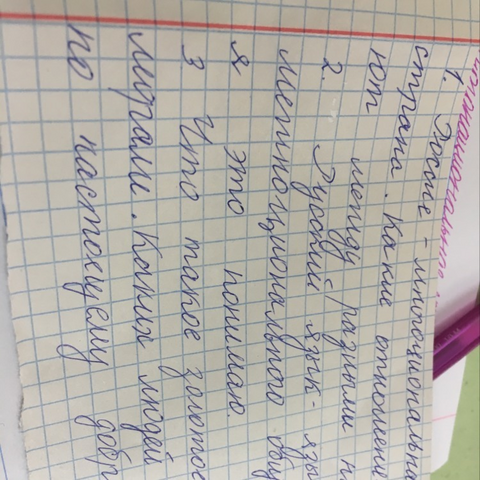 1. Россие - многоциональна
страна. Какие отношение
ют между разными н
2. Русский язык - язы
межноционального общ
я это понимаю.
3 Что такое золотое
морали. Каких людей
по настоющему добр